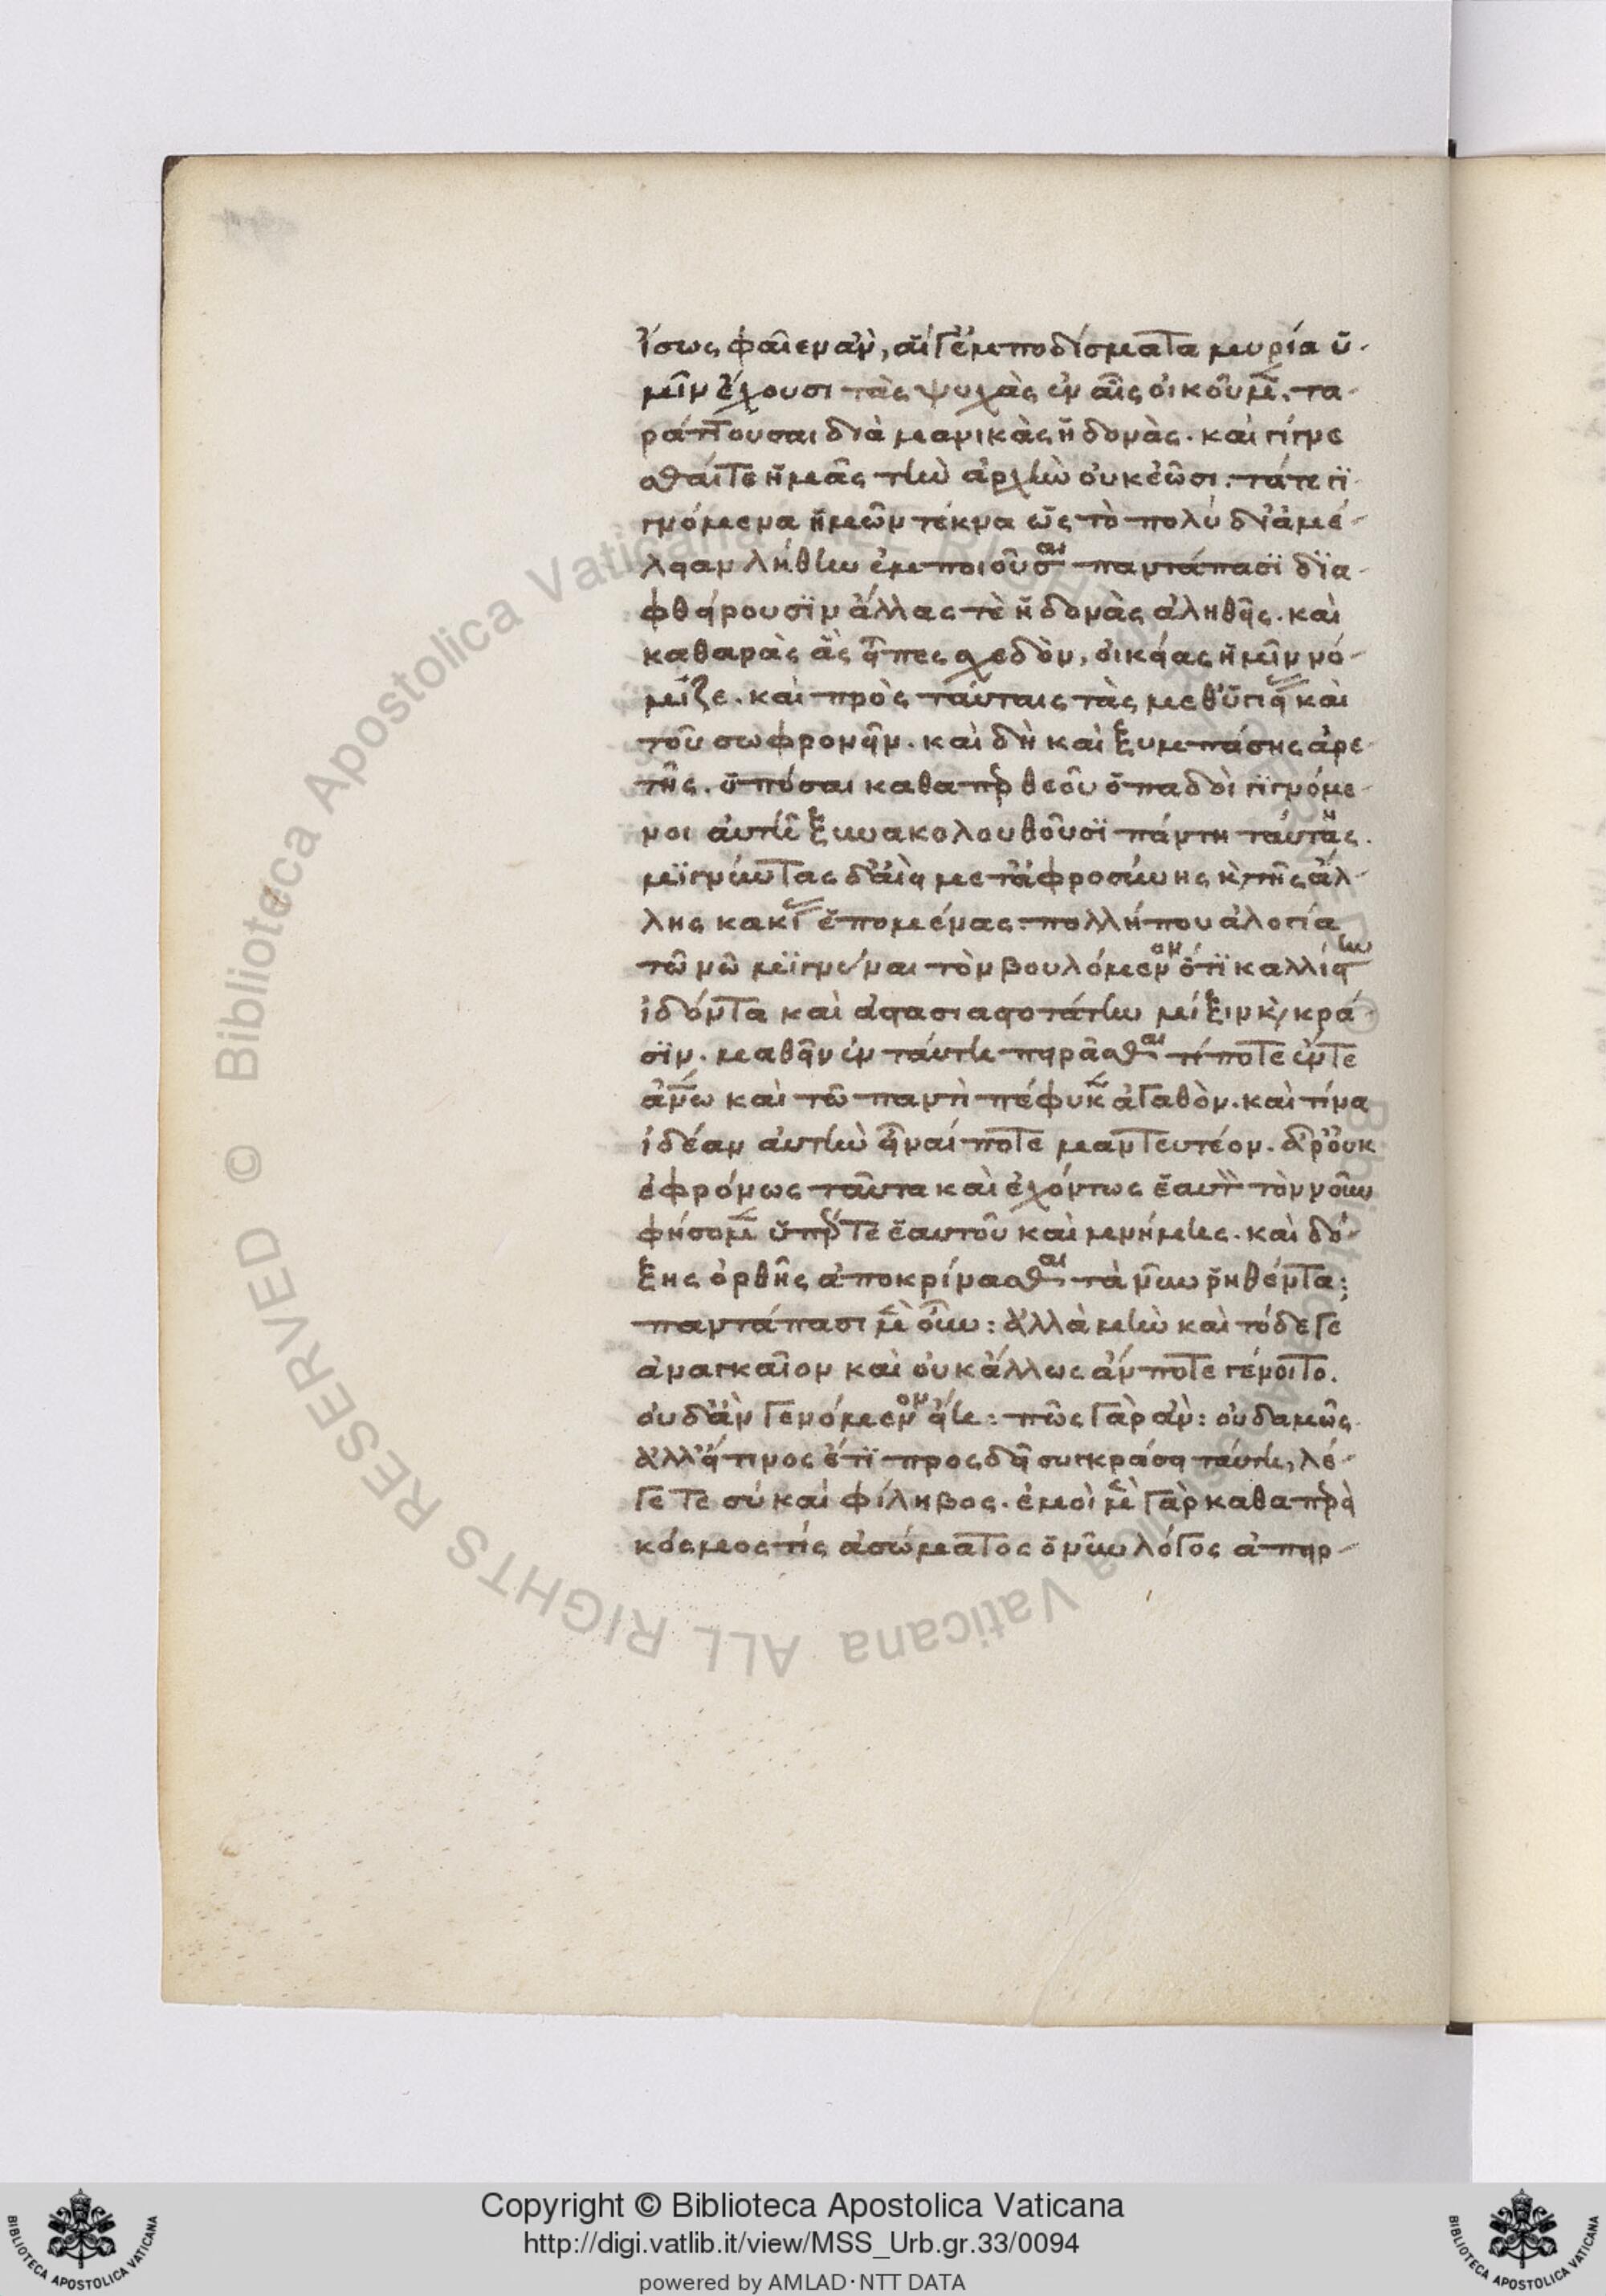 ἴσως φαῖεν ἂν, αἵ γ' ἐμποδίσματα μυρία ὑ-
μῖν ἔχουσι τὰς ψυχὰς ἐν αἷς οἰκοῦμεν. τα-
ράττουσαι διὰ μανικὰς ἡδονὰς. καὶ γίγνε
σθαί τε ἡμᾶς τὴν ἀρχὴν οὐκ ἐῶσι. τά τε γι-
γνόμενα ἡμῶν τέκνα ὡς τὸ πολὺ δι' ἀμέ-
λειαν λήθην ἐμποιοῦσαι παντάπασι δια-
φθείρουσιν ἄλλας τὲ ἡδονὰς ἀληθεῖς. καὶ
καθαρὰς ἃς εἶπες σχεδὸν, οἰκείας ἡμῖν νό-
μιζε. καὶ πρὸς ταύταις τὰς μεθ' ὑγιείας καὶ
τοῦ σωφρονεῖν. καὶ δὴ καὶ ξυμπάσης ἀρε-
τῆς. ὁπόσαι καθάπερ θεοῦ ὀπαδοὶ γιγνόμε-
νοι αὐτῆ ξυνακολουθοῦσι πάντη ταύτας.
μιγνύντας δ' ἀεὶ μετ' ἀφροσύνης καὶ τῆς ἄλ-
λης κακίας ἑπομένας. πολλή που ἀλογία
τῶ νῶ μιγνύναι τὸν βουλόμενον ὅτι καλλίστην
ἰδόντα καὶ ἀστασιαστοτάτην μίξιν καὶ κρά-
σιν. μαθεῖν ἐν ταύτη πειρᾶσθαι τί ποτε ἔν τε
ἀνθρώπω καὶ τῶ παντὶ πέφυκεν ἀγαθὸν. καὶ τίνα
ἰδέαν αὐτὴν εἶναί ποτε μαντευτέον. ἆρ' οὐκ
ἐμφρόνως ταῦτα καὶ ἐχόντως ἑαυτὸν τὸν νοῦν
φήσομεν ὑπέρ τε ἑαυτοῦ καὶ μνήμης. καὶ δό-
ξης ὀρθῆς ἀποκρίνασθαι τὰ νῦν ῥηθέντα:
παντάπασι μὲν οὖν: ἀλλὰ μὴν καὶ τόδε γε
ἀναγκαῖον καὶ οὐκ ἄλλως ἄν ποτε γένοιτο.
οὐδ' ἂν γενόμενον εἴη: πῶς γὰρ ἂν: οὐδαμῶς
ἀλλ' εἴ τινος ἔτι προςδεῖ συγκράσει ταύτη, λέ-
γετε σὺ καὶ φίληβος. ἐμοὶ μὲν γὰρ καθαπερεὶ
κόσμος τὶς ἀσώματος ὁ νῦν λόγος ἀπειρ-
Copyright © Biblioteca Apostolica Vaticana
http://digi.vatlib.it/view/MSS_Urb.gr.33/0094
powered by AMLAD·NTT DATA
BIBLIOTECA APOSTOLICA VATICANA
BIBLIOTECA APOSTOLICA VATICANA
© Biblioteca Apostolica Vaticana ALL RIGHTS RESERVED
© Biblioteca Apostolica Vaticana ALL RIGHTS RESERVED